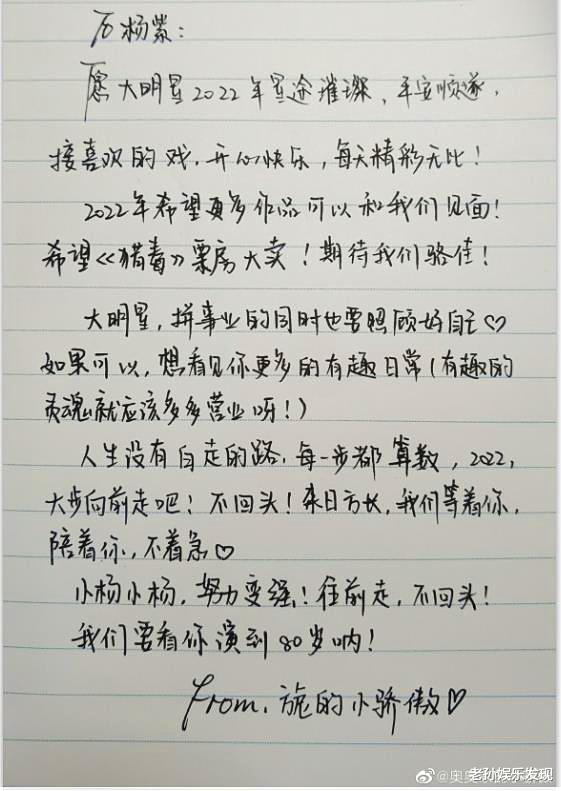 杨紫：
愿大明星2022年星途璀璨，平安顺遂，
接喜欢的戏，开心快乐，每天精彩无比！
2022年希望更多作品可以和我们见面！
希望《猎毒》票房大卖！期待我们骆佳！
大明星，拼事业的同时也要照顾好自己♡
如果可以，想看见你更多的有趣日常(有趣的
灵魂就应该多多营业呀！)
人生没有白走的路，每一步都算数，2022，
大步向前走吧！不回头！来日方长，我们等着你，
陪着你，不着急♡
小杨小杨，努力变强！往前走，不回头！
我们要看你演到80岁呐！
From. 旎的小骄傲♡
老孙娱乐发现